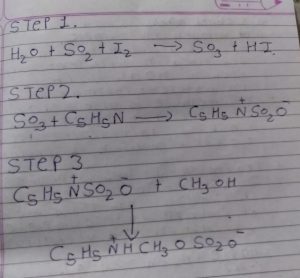 STEP 1.
H2O + SO2 + I2 → SO3 + HI
STEP 2.
SO3 + C5H5N → C5H5N⁺SO2O⁻
STEP 3
C5H5N⁺SO2O⁻ + CH3OH
↓
C5H5N⁺HCH3OSO2O⁻